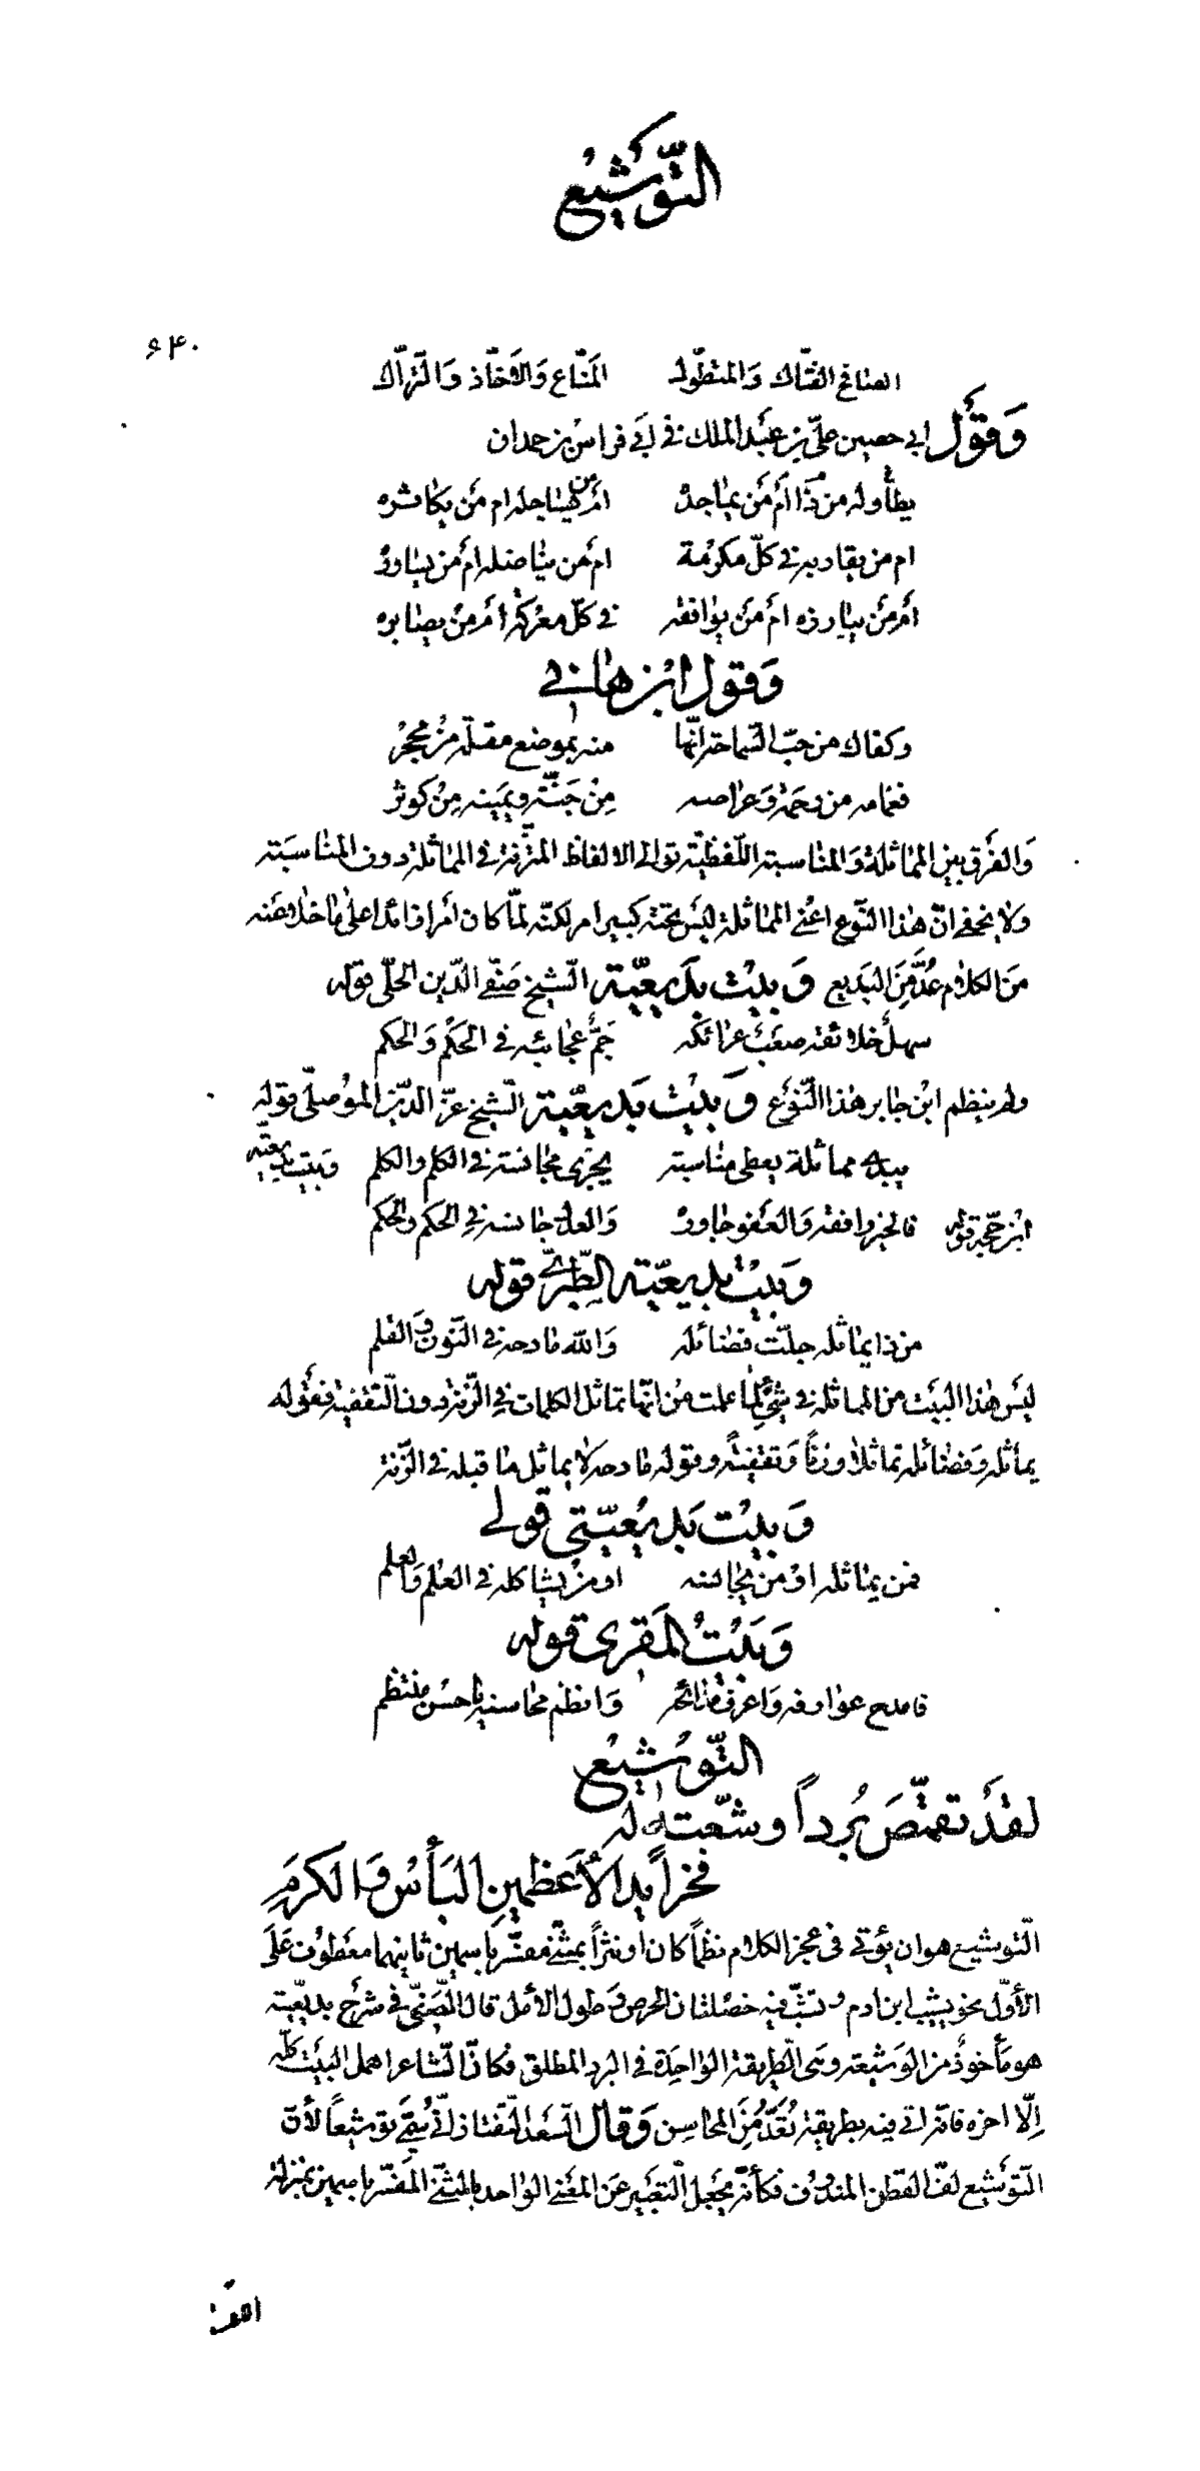 التَّوشيع
۶۴۰
الصافح الفتّاك وَالمتطوّل المَنّاع وَالأخّاذ وَالتّرّاك
وَقَول ابي حصين عليّ بن عبد الملك في ابي فراس بن حمدان
يطاوله من ذا أم من يماجده ام من يساجله ام من يكاثره
ام من يقاربه في كلّ مكرمة ام من يناضله ام من يساوره
أم من يبارزه ام من يوافقه في كلّ معركة ام من يصابره
وَقول ابن هاني
وكفاك من حبّ السّماحة انّها منه بموضع مقلة من محجر
فغمامه من رحمة وَعراصه مِن جَنّة ويمينه مِن كوثر
وَالفَرق بين المماثلة وَالمناسبة اللّفظيّة توالي الالفاظ المتّزنة في المماثلة دون المناسَبَة
وَلا يخفى انّ هٰذا النّوع اعني المماثلة ليس تحته كبير امر لكنّه لمّا كان امرا زائدا على ما خلا عنه
مَن الكلام عُدَّ مِنَ البَديع وَبيت بَديعيّة الشّيخ صَفيّ الدّين الحلّي قوله
سهلٌ خلائقه صعبٌ عرائكه جَمٌّ عجائبه في الحكم وَالحكم
ولم ينظم ابن جابر هٰذا النّوع وَبيت بَديعيّة الشّيخ عزّ الدّين الموصليّ قوله
يبدي مماثلة يعطي مناسبة يجزي مجانسة في الكلم والكلم وَبيت بديعيّة
ابن حجّة قوله فالخير وافقه وَالعفو جاوره وَالعدل جانسه في الحكم والحكم
وَبيت بديعيّة الطّبريّ قوله
من ذا يماثله جلّت فضائله وَالله مادحه في النّون وَالقلم
ليَس هٰذا البيَت من المماثلة في شيءٍ لِما علمت من انّها تماثل الكلمات في الزّنة دون التّقفية فقوله
يماثله وَفضائله تماثلا وزناً وَتقفيةً وقوله مادحه لا يماثل ما قبله في الزّنة
وَبيت بَديعيّتي قولي
فمن يماثله اوْ من يجانسه او من يشاكله في العلم وَالعلم
وَبَيتُ المقري قوله
فامدح عوارفه وَاعرف وَانظم محاسنه باحسن منتظم
التّوشيع
لقد تقمّصَ بُرداً وشّعته له
فخراً يد الأعظمينِ البأس وَالكرَمِ
التّوشيع هو ان يؤتى في عجز الكلام نظماً كان او نثراً بمثنّى مفسّر باسمين ثانيهما معطوف عَلَى
الأوّل نحو يشيب ابن ادم وتشبّ فيه خصلتان الحرص وَ طول الأمل قال الصّفيّ في شرح بديعيّته
هو مأخوذٌ من الوَشيعة وهي الطّريقة الواحدة في البرد المطلق فكانّ الشّاعر اهمل البيت كلّه
اِلّا اخره فانّه اتى فيه بطريقة تُعَدُّ مِنَ المحاسِن وَقال السّعد التّفتازاني سُمّي توشيعاً لأنّ
التّوشيع لفّ القطن المندوف فكأنّه يجعل التّعبير عَن المعنى الواحد بالمثنّى المفسّر باسمين بمنزلة